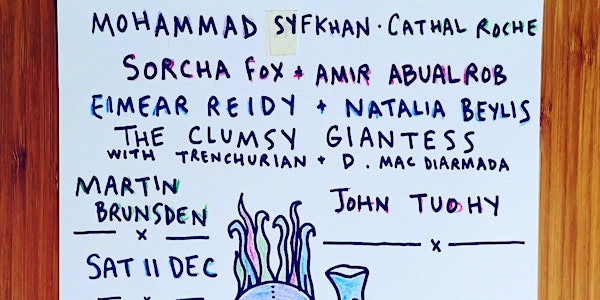 MOHAMMAD SYFKHAN · CATHAL ROCHE
SORCHA FOX + AMIR ABUALROB
EIMEAR REIDY + NATALIA BEYLIS
THE CLUMSY GIANTESS
WITH TRENCHURIAN + D. MAC DIARMADA
MARTIN
BRUNSDEN
JOHN TUOHY
SAT 11 DEC